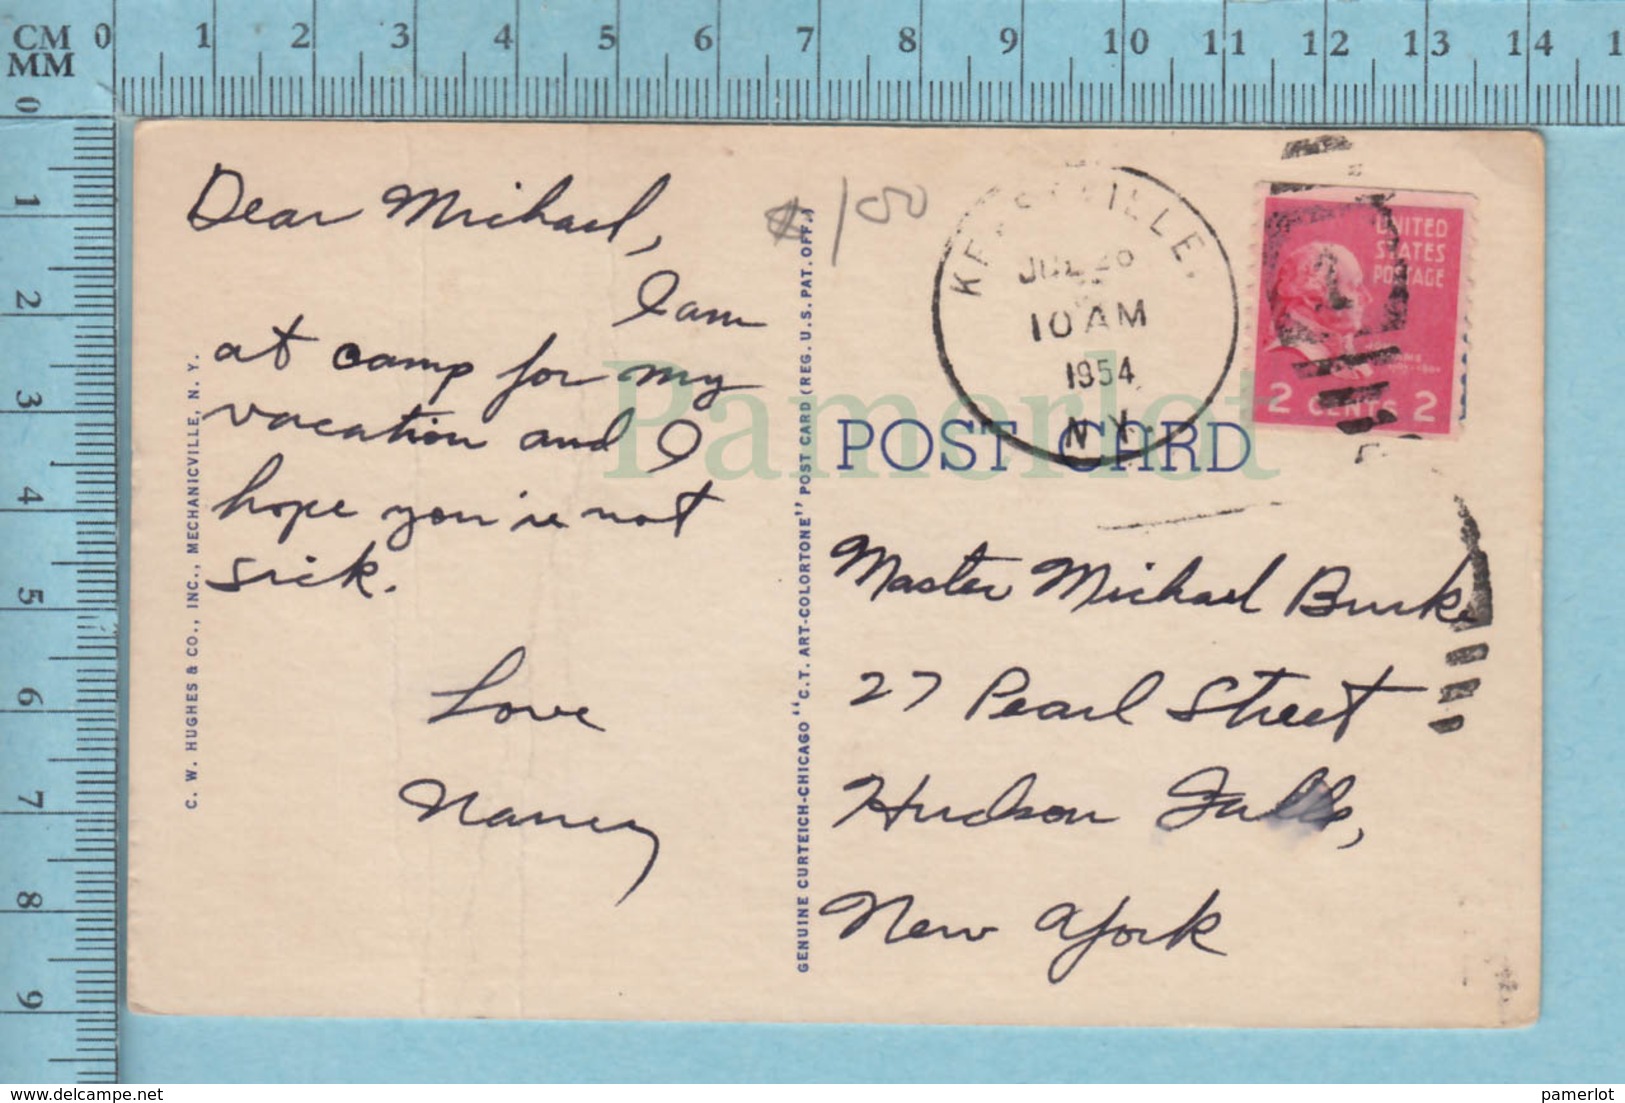 CM 0 1 2 3 4 5 6 7 8 9 10 11 12 13 14 1
MM
0 1 2 3 4 5 6 7 8 9
Dear Michael,
I am
at camp for my
vacation and I
hope you're not
sick.
Love
Nancy
C. W. HUGHES & CO., INC., MECHANICVILLE, N. Y.
GENUINE CURTEICH-CHICAGO "C.T. ART-COLORTONE" POST CARD (REG. U.S. PAT. OFF.)
100
JUL 26
10 AM
1954
N.Y.
UNITED
STATES
POSTAGE
2 CENTS 2
POST CARD
Pamerlot
Master Michael Burke
27 Pearl Street
Hudson Falls,
New York
www.delcampe.net
pamerlot